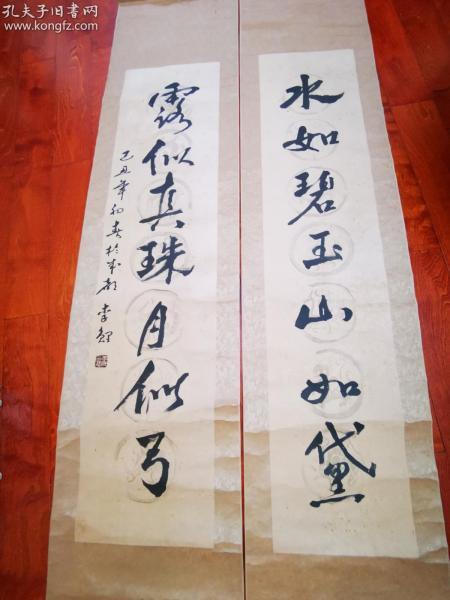 水如碧玉山如黛
露似真珠月似弓
己丑年初春於成都 李鯉
孔夫子旧书网
www.kongfz.com